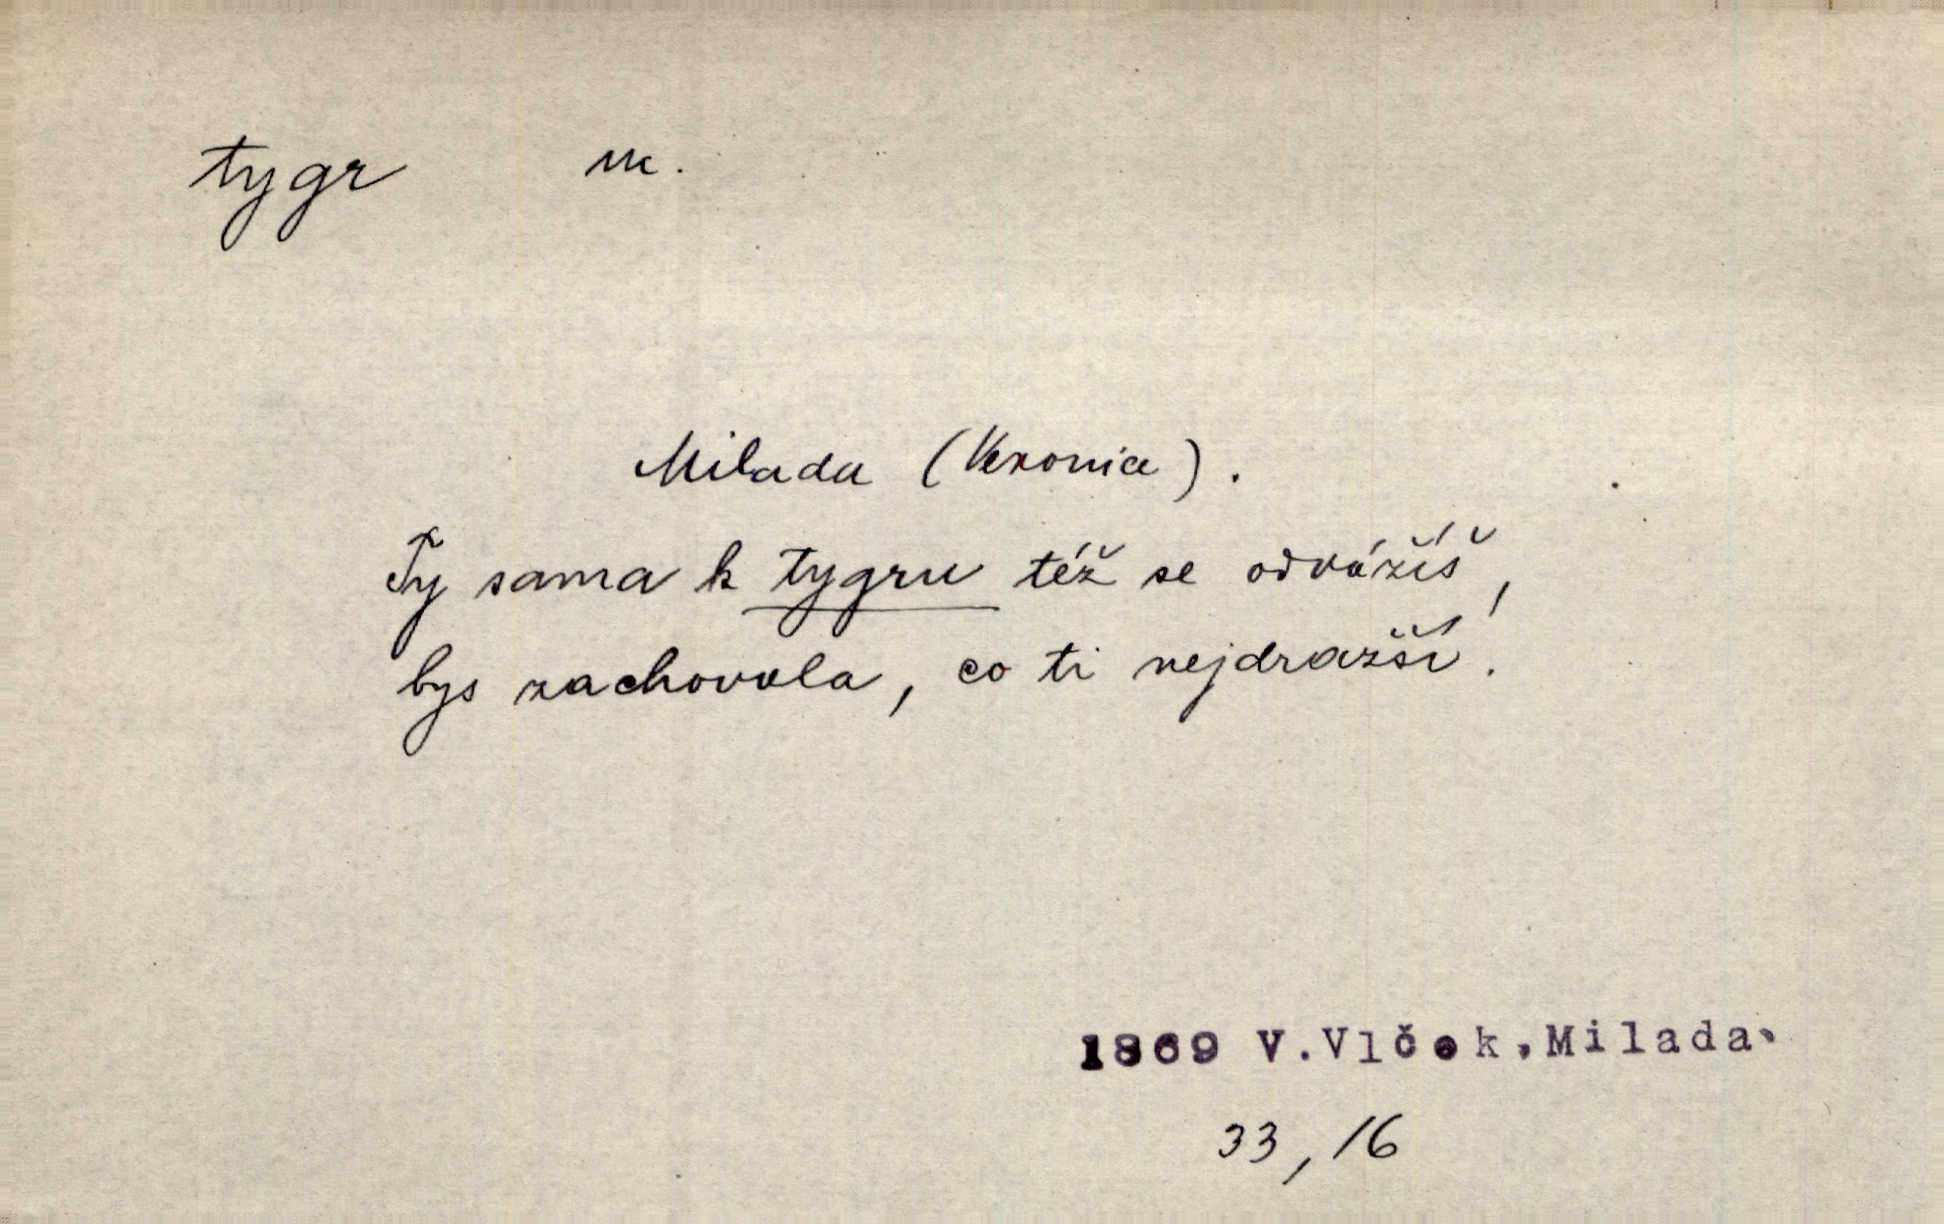 tygr m.
Milada (Veronice).
Ty sama k tygru též se odvážíš,
bys zachovala, co ti nejdražší.
1869 V.Vlček,Milada.
33, 16